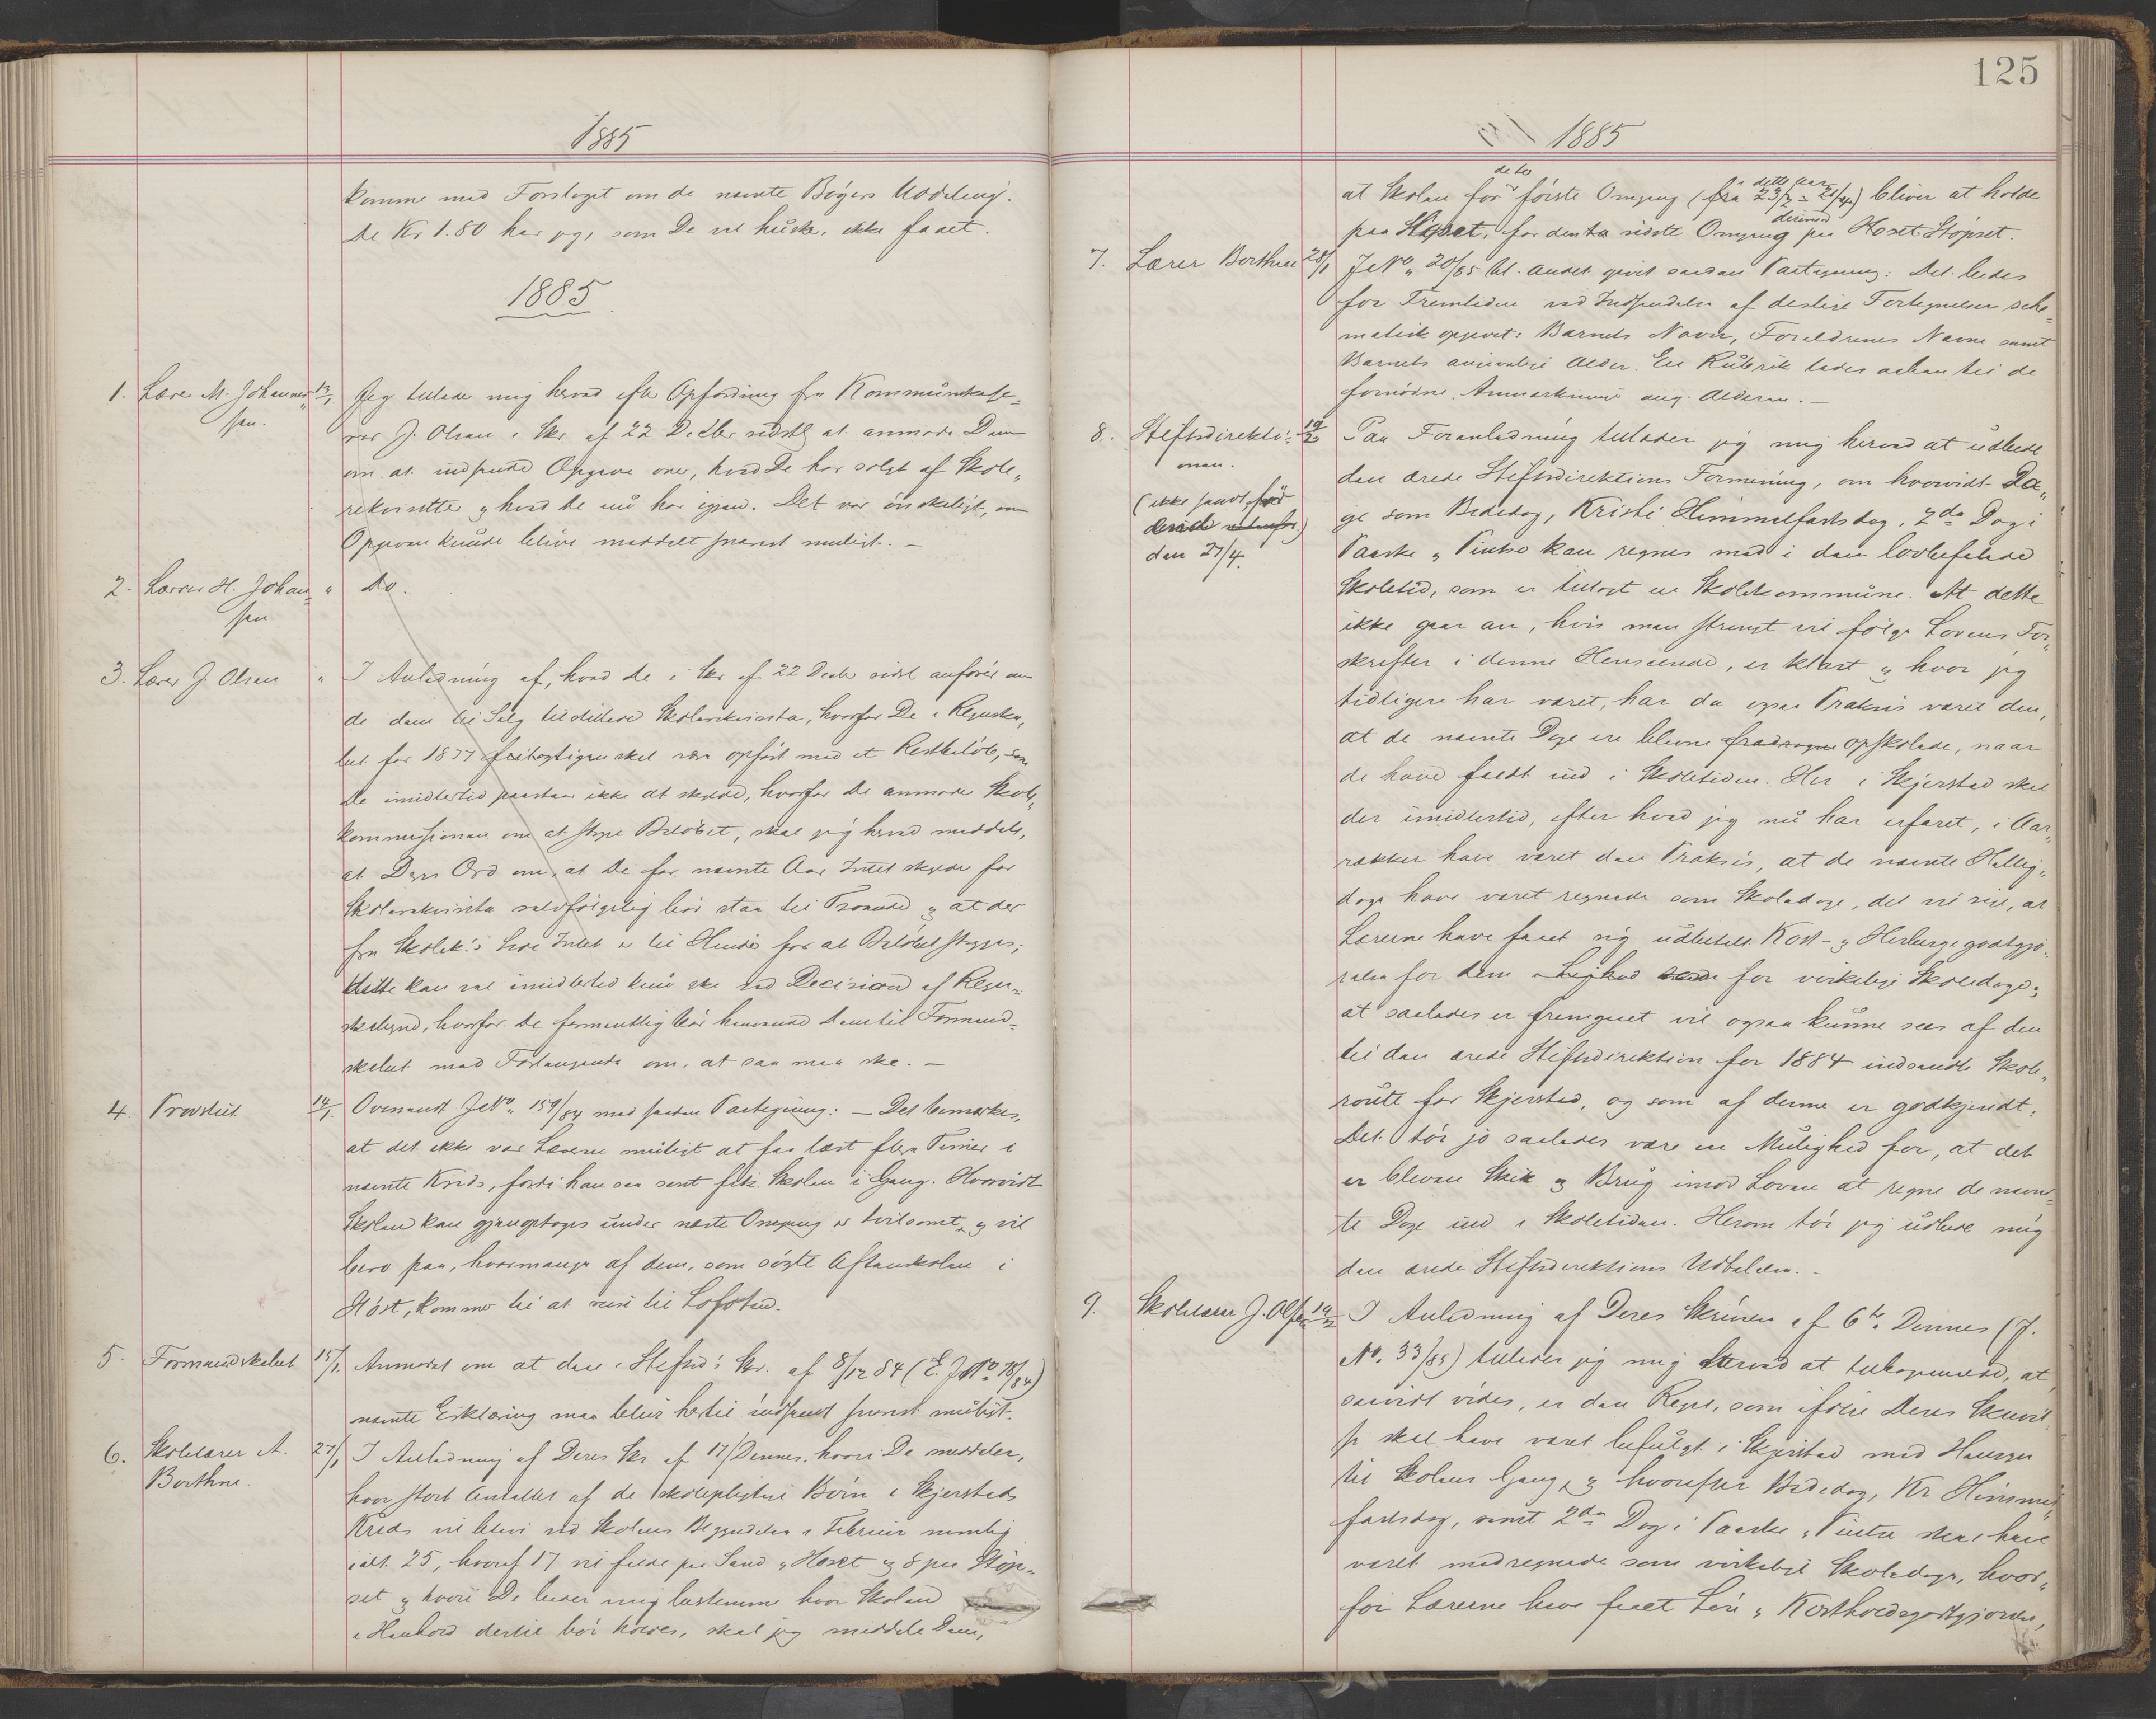 1885
komme med Forslaget om de nævnte Bøgers Uddeling.
De Kr 1.80 har jeg, som De vel husker, ikke faaet.
1885
1. Lærer M. Johannes-
sen.
13/1
Jeg tillader mig herved efter Opfordring fra Kommunekasse-
rer J. Olsen i Skr. af 22 Decbr sidstl. at anmode Dem
om at indsende Opgave over, hvad De har solgt af Skole-
rekvisitter og hvad De nu har igjen. Det var ønskeligt, om
Opgaven kunde blive meddelt snarest muligt. —
2. Lærer H. Johan-
sen
"
Do.
3. Lærer J. Olsen
"
I Anledning af, hvad De i Skr af 22 Decbr sidst anfører om
de dem til Salg tilstillede Skolerekvisita, hvorfor De i Regnska-
bet for 1877 skal være opført med et Restbeløb, som
De imidlertid paastaar ikke at skylde, hvorfor De anmoder Skole-
kommissionen om at stryge Beløbet, skal jeg herved meddele,
at Deres Ord om, at De for nævnte Aar Intet skylder for
Skolerekvisita selvfølgelig bør staa til Troende og at der
fra Skolek.s Side Intet er til Hinder for at Beløbet stryges;
dette kan vel imidlertid kun ske ved Decision af Regn-
skabet, hvorfor De formentlig bør henvende Dem til Formand-
skabet med Forlangende om, at saa maa ske. —
4. Provstiet
14/1.
Oversendt J. No. 159/84 med saadan Paategning: — Det bemærkes,
at det ikke var Læreren muligt at faa læst flere Timer i
nævnte Kreds, fordi han saa sent fik Skolen i Gang. Hvorvidt
Skolen kan gjenoptages under næste Omgang er tvilsomt, og vil
bero paa, hvormange af dem, som søgte Aftenskolen i
Høst, kommer til at reise til Lofoten.
5. Formandskabet
15/1.
Anmodet om at den i Stiftsd.s Skr. af 8/12 84 (E. J. No 78/84)
nævnte Erklæring maa blive hertil indsendt snarest muligt.
6. Skolelærer A.
Borthne.
27/1
I Anledning af Deres Skr af 17/ Dennes, hvori De meddeler,
hvor stort Antallet af de skolepligtige Børn i Skjerstads
Kreds vil blive ved Skolens Begyndelse i Februar nemlig
ialt 25, hvoraf 17 vil falde paa Sand & Hoset og 8 paa Støp-
set og hvori De beder mig bestemme hvor Skolen
i Henhold dertil bør holdes, skal jeg meddele Dem,
125
1885
dette
i dette Aar
at Skolen for første Omgang (fra 23/2 - 21/4) bliver at holde
derimod
paa Støpset, for den sidste Omgang paa Hoset Støpset.
7. Lærer Borthne
28/1
J. No. 20/85 bl. Andet givet saadan Paategning: Det bedes
for Fremtiden ved Indsendelse af deslige Fortegnelser sche-
matisk opgivet: Barnets Navn, Forældrenes Navne samt
Barnets Alder. En Rubrik lades aaben til de
fornødne Anmærkninger ang. Alderen. —
8. Stiftsdirektio-
nen.
(ikke sendt før
den 27/4.
19/2
Paa Foranledning tillader jeg mig herved at udbede
den ærede Stiftsdirektions Formening, om hvorvidt Da-
ge som Bededag, Kristi Himmelfartsdag, 2den Dag i
Paaske & Pintse kan regnes med i den lovbefalede
Skoletid, som er tillagt en Skolekommune. At dette
ikke gaar an, hvis man strengt vil følge Lovens For-
skrifter i denne Henseende, er klart og hvor jeg
tidligere har været, har da ogsaa Praksis været den,
at de nævnte Dage ere blevne fradragne opskolede, naar
de have faldt ind i Skoletiden. Her i Skjerstad skal
der imidlertid, efter hvad jeg nu har erfaret, i Aar-
rækker have været den Praksis, at de nævnte Hellig-
dage have været regnede som Skoledage, det vil sige, at
Lærerne have faaet sig udbetalt Kost- og Herbergegodtgjø-
relse for dem for virkelige Skoledage;
at saaledes er fremgaaet vil ogsaa kunne sees af den
til den ærede Stiftsdirektion for 1884 indsendte Skole-
route for Skjerstad, og som af denne er godkjendt.
Det tør jo saaledes være en Mulighed for, at det
er bleven Skik og Brug imod Loven at regne de nævn-
te Dage ind i Skoletiden. Herom tør jeg udbede mig
den ærede Stiftsdirektions Udtalelse. —
9. Skolelærer J. Olsen
19/2
I Anledning af Deres Skrivelse af 6te Dennes (J.
No. 33/85) tillader jeg mig herved at tilkjendegive, at,
saavidt vides, er den Regel, som ifølge Deres Skrivel-
se skal have været befulgt i Skjerstad med Hensyn
til Skolens Gang, og hvorefter Bededag, Kr Himmel-
fartsdag, samt 2den Dag i Paaske & Pintse skal have
været medregnede som virkelige Skoledage, hvor-
for Lærerne have faaet Løn & Kostholdsgodtgjørelse,